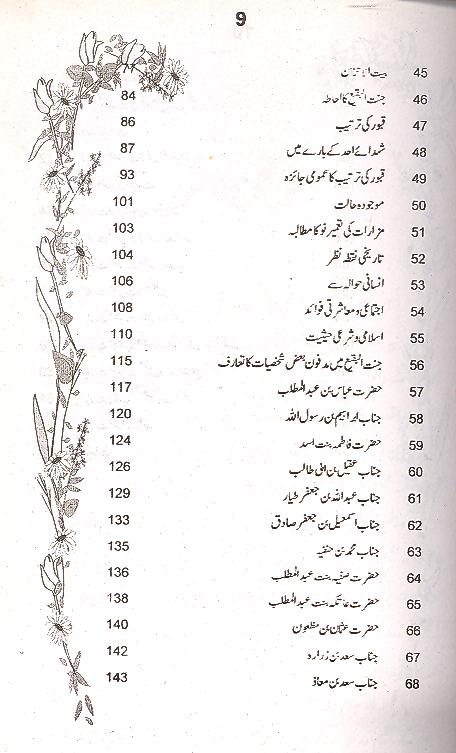 9
45 بیت الاحزان
46 جنت البقیع کا احاطہ 84
47 قبور کی ترتیب 86
48 شہدائے احد کے بارے میں 87
49 قبور کی ترتیب کا عمومی جائزہ 93
50 موجودہ حالت 101
51 مزارات کی تعمیر نو کا مطالبہ 103
52 تاریخی نقطہ نظر 104
53 انسانی حوالہ سے 106
54 اجتماعی و معاشرتی فوائد 108
55 اسلامی و شرعی حیثیت 110
56 جنت البقیع میں مدفون بعض شخصیات کا تعارف 115
57 حضرت عباس بن عبد المطلب 117
58 جناب ابراہیم بن رسول اللہ 120
59 حضرت فاطمہ بنت اسد 124
60 جناب عقیل بن ابی طالب 126
61 جناب عبد اللہ بن جعفر طیار 129
62 جناب اسمعیل بن جعفر صادق 133
63 جناب محمد بن حنفیہ 135
64 حضرت صفیہ بنت عبد المطلب 136
65 حضرت عاتکہ بنت عبد المطلب 138
66 حضرت عثمان بن مظعون 140
67 جناب سعد بن زرارہ 142
68 جناب سعد بن معاذ 143